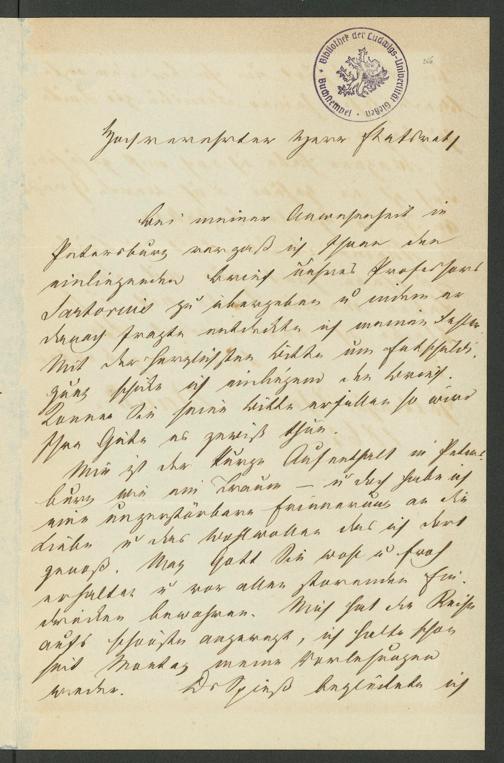 Bibliothek der Ludwigs-Universität Gießen
Buchstempel
Hochverehrter Herr Statsrath
Bei meiner Anwesenheit in
Petersburg vergaß ich Ihnen den
einliegenden Brief unsres Professors
Sartorius zu übergeben u indem er
danach fragte entdeckte ich meinen Fehler.
Mit der herzlichsten Bitte um Entschuldi-
gung schicke ich einliegend den Brief.
Können Sie seine Bitte erfüllen so wird
Ihre Güte es gewiß thun.
Mir ist der kurze Aufenthalt in Peters-
burg wie ein Traum – u doch habe ich
eine unzerstörbare Erinnerung an die
Liebe u das Wohlwollen das ich dort
genoß. Mag Gott Sie wohl u froh
erhalten u vor allen störenden Ein-
drücken bewahren. Mich hat die Reise
aufs schönste angeregt, ich halte schon
seit Montag meine Vorlesungen
wieder. Dr Spieß begleitete ich